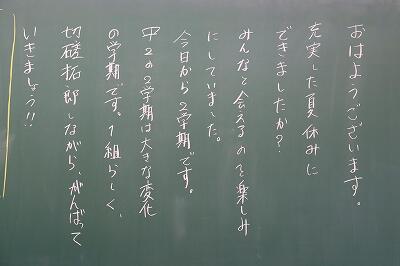 おはようございます。
充実した夏休みに
できましたか?
みんなと会えるのを楽しみ
にしていました。
今日から2学期です。
中2の2学期は大きな変化
の学期です。1組らしく、
切磋拓郎しながら、がんばって
いきましょう!!